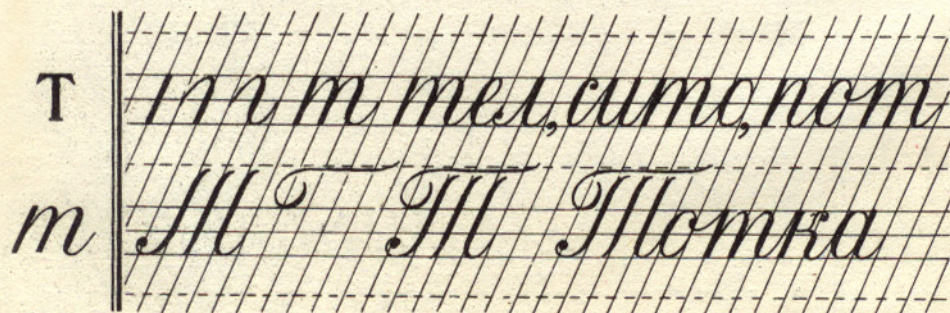 т т тел, сито, пот
т Т Тотка